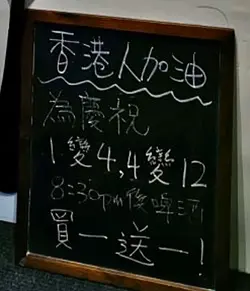 香港人加油
為慶祝
1變4,4變12
8:30pm後啤酒
買一送一!